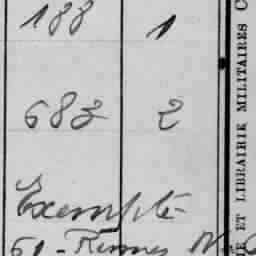 188 1
683 2
Exempté
61 - Rennes
IE ET LIBRAIRIE MILITAIRES C